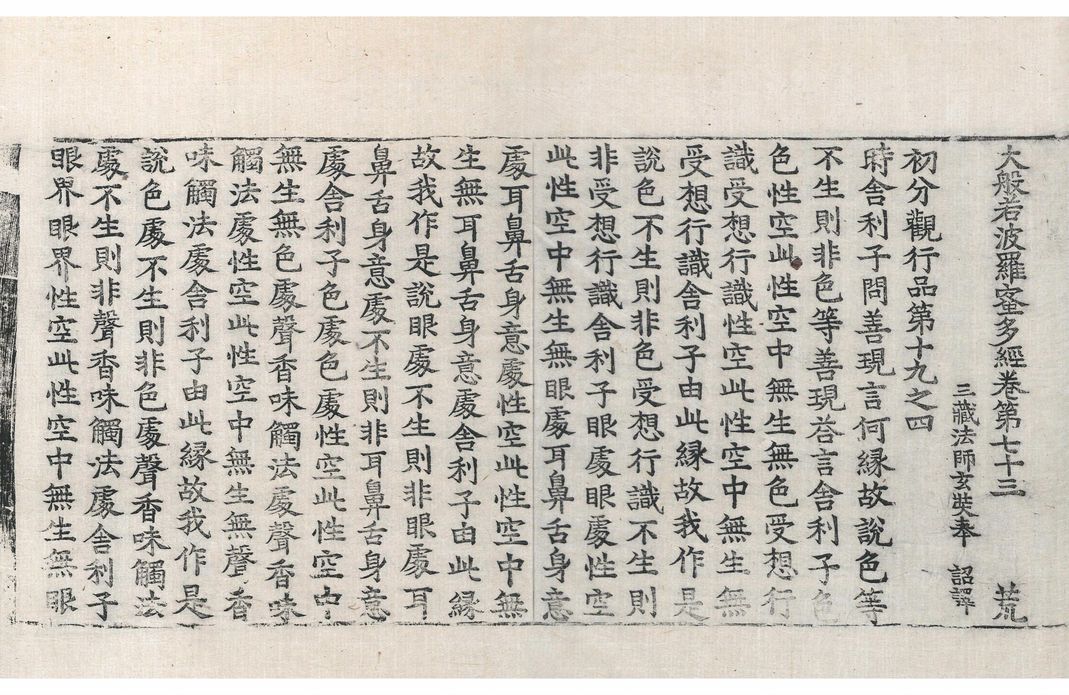 大般若波羅蜜多經卷第七十三　荒
三藏法師玄奘奉　詔譯
初分觀行品第十九之四
時舍利子問善現言何縁故說色等
不生則非色等善現荅言舍利子色
色性空此性空中無生無色受想行
識受想行識性空此性空中無生無
受想行識舍利子由此縁故我作是
說色不生則非色受想行識不生則
非受想行識舍利子眼處眼處性空
此性空中無生無眼處耳鼻舌身意
處耳鼻舌身意處性空此性空中無
生無耳鼻舌身意處舍利子由此縁
故我作是說眼處不生則非眼處耳
鼻舌身意處不生則非耳鼻舌身意
處舍利子色處色處性空此性空中
無生無色處聲香味觸法處聲香味
觸法處性空此性空中無生無聲香
味觸法處舍利子由此縁故我作是
說色處不生則非色處聲香味觸法
處不生則非聲香味觸法處舍利子
眼界眼界性空此性空中無生無眼